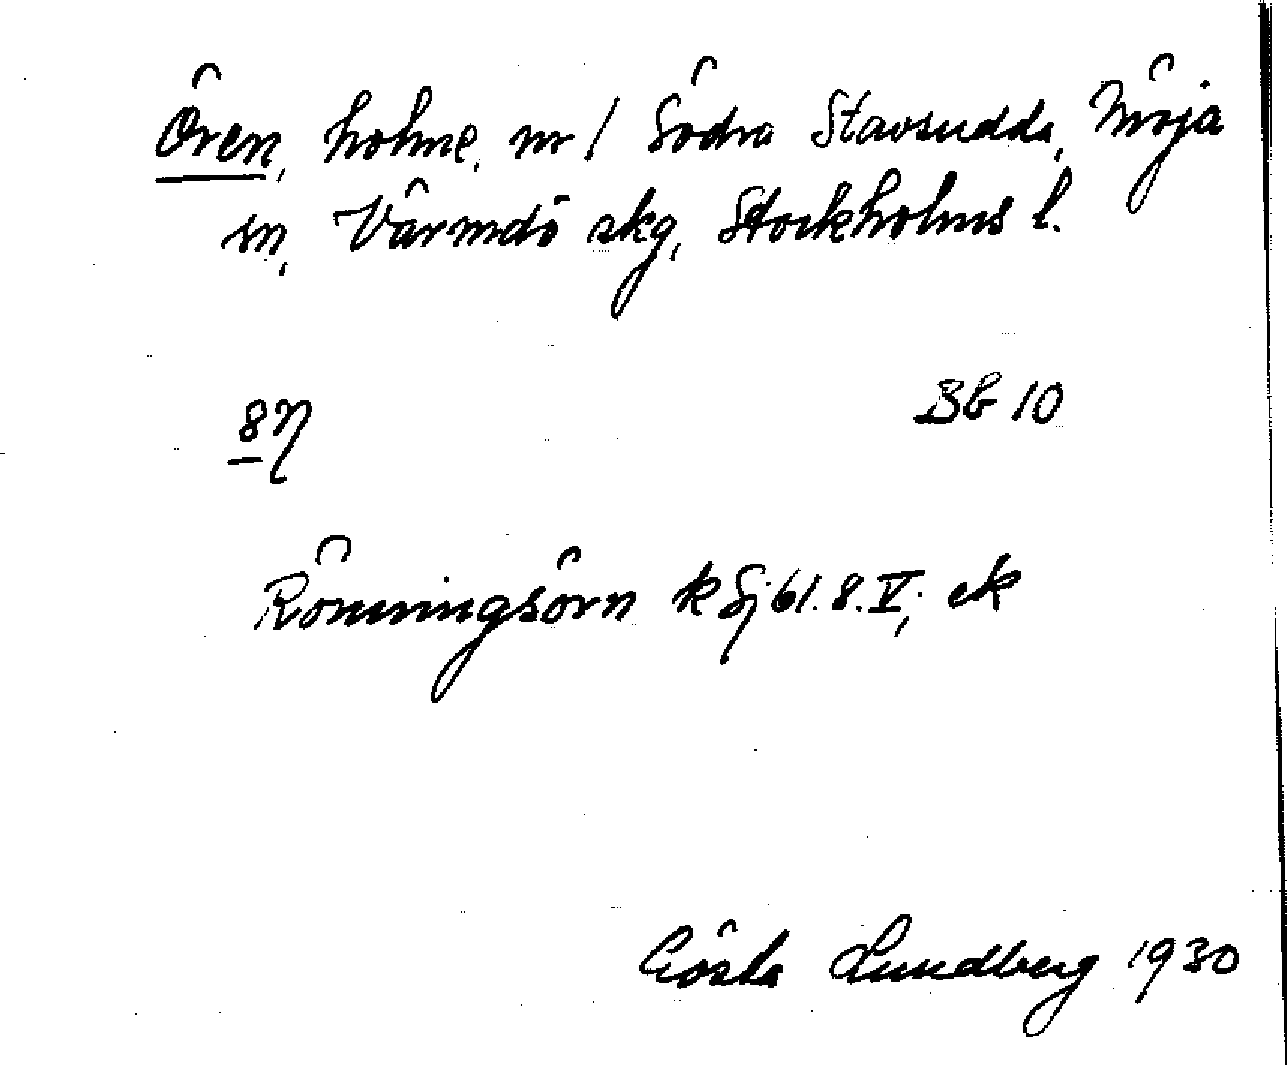 Ören, holme, nr 1 Södra Stavsudda, Möja
sn, Värmdö skg, Stockholms l.
8η Bb 10
Rönningsörn k Sj 61. 8. V; ek
Gösta Lundberg 1930